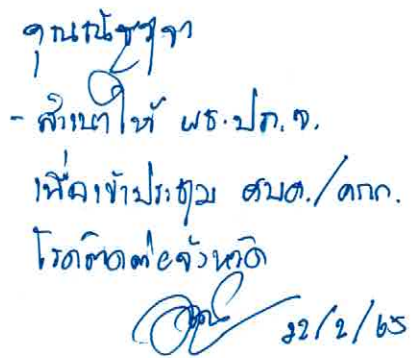 คุณณัชฎา
- สำเนาให้ ผธ.ปภ.จ.
เพื่อเข้าประชุม ศบค./คกก.
โรคติดต่อจังหวัด
22/2/65